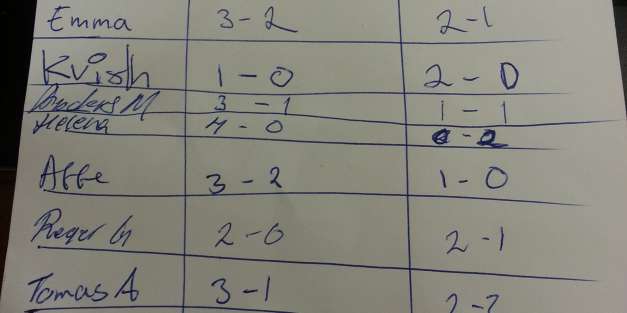 Emma 3-2 2-1
Kvish 1-0 2-0
Anders M 3-1 1-1
Helena 4-0 2
Affe 3-2 1-0
Roger G 2-0 2-1
Tomas A 3-1 2-2